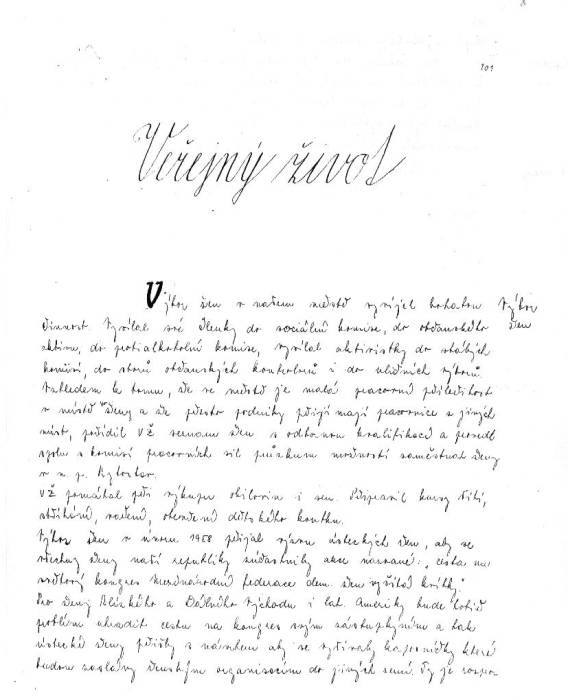 101
Veřejný život
Výbor žen v našem městě vyvíjel bohatou Výbor
činnost. Vysílal své členky do sociální komise, do občanského žen
aktivu, do protialkoholní komise, vysílal aktivistky do stálých
komisí, do sborů občanských a i do uličních výborů.
Vzhledem k tomu, že ve městě je malá pracovní příležitost
v místě ženy a že přesto podniky přijímají pracovnice z jiných
míst, pořídil VŽ seznam žen s odbornou kvalifikací a provedl
spolu s komisí pracovních sil průzkum možností zaměstnat ženy
v n. p. Kylostar.
VŽ pomáhal při výkupu obilovin i sena. Připravil kursy šití,
stříhání, vaření, otevření dětského koutku.
Výbor žen v únoru 1958 přijal výzvu ústeckých žen, aby se
všechny ženy naší republiky zúčastnily akce nazvané: „cesta na
světový kongres Mezinárodní federace dem. žen
Pro ženy Blízkého a Dálného Východu i lat. Ameriky bude totiž
problém uhradit cestu na kongres svým zástupkyním a tak
ústecké ženy přišly s návrhem aby se vyšívaly kapesníčky které
budou zaslány ženským organisacím do jiných zemí. Ty je rozpro-